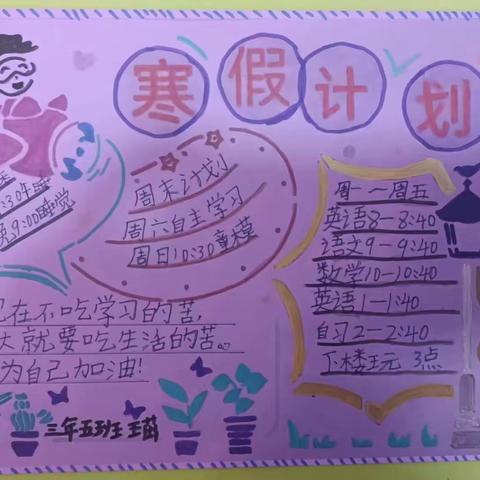 寒假计划
:30午睡
晚9:00睡觉
周末计划
周六自主学习
周日10:30童模
周一一周五
英语8-8:40
语文9-9:40
数学10-10:40
英语1-1:40
自习2-2:40
下楼玩 3点
现在不吃学习的苦,
大就要吃生活的苦。
为自己加油!
三年五班 王